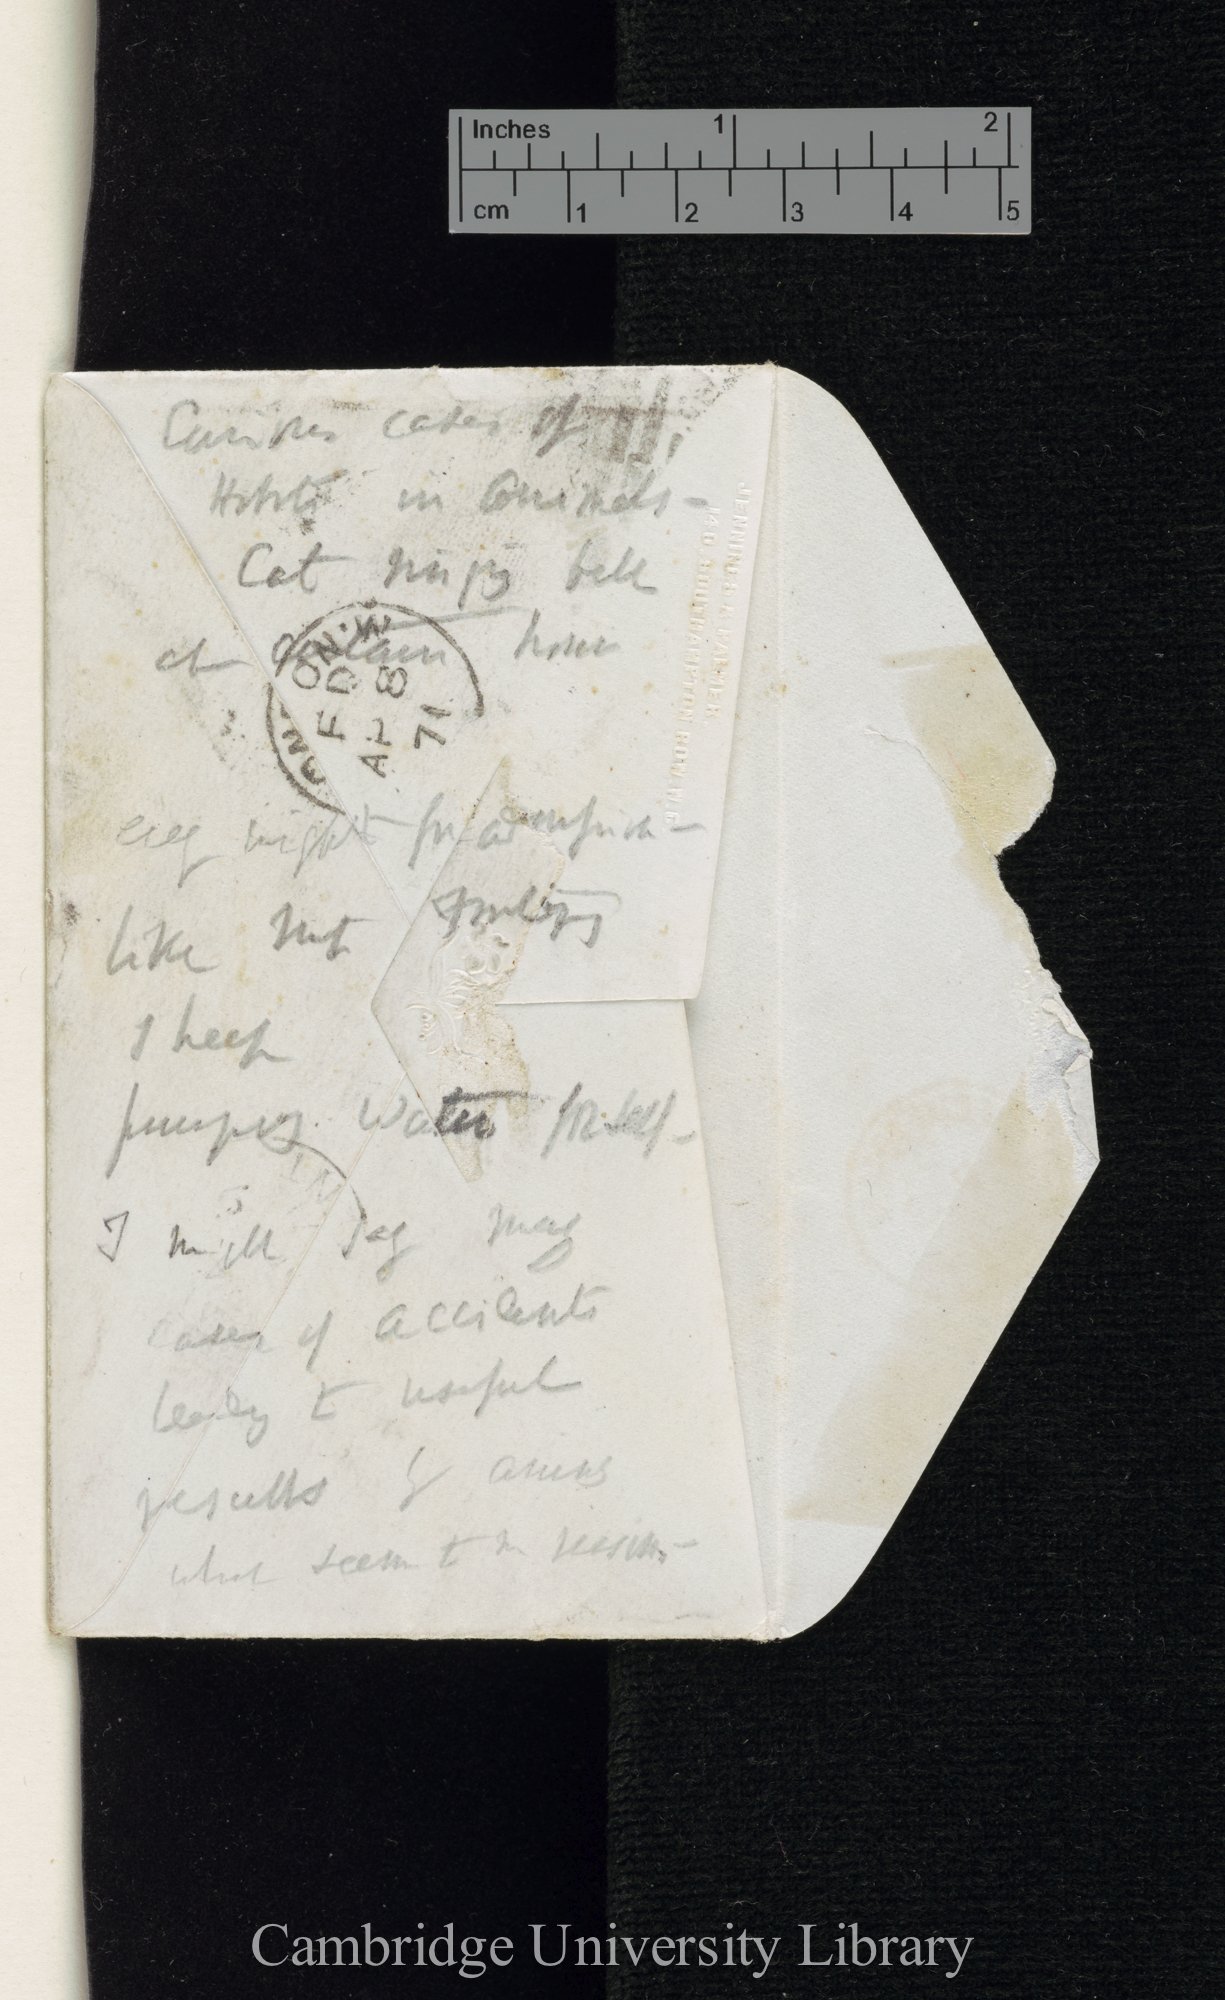 Inches 1 2
cm 1 2 3 4 5
Curious cases of
Habits in animals –
Cat ringing bell
at certain hour
LONDON·W
F D
AP 8
71
JENNINGS & PALMER
140 SOUTHAMPTON ROW W.C.
every night for admission –
like
Sheep
pumping water for self –
I might say many
cases of accidents
leading to useful
results by animals
what seem to reason –
Cambridge University Library